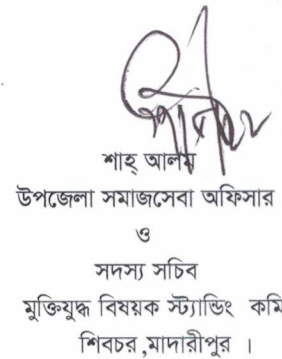 শাহ্ আলম
উপজেলা সমাজসেবা অফিসার
ও
সদস্য সচিব
মুক্তিযুদ্ধ বিষয়ক স্ট্যান্ডিং কমি
শিবচর,মাদারীপুর ।